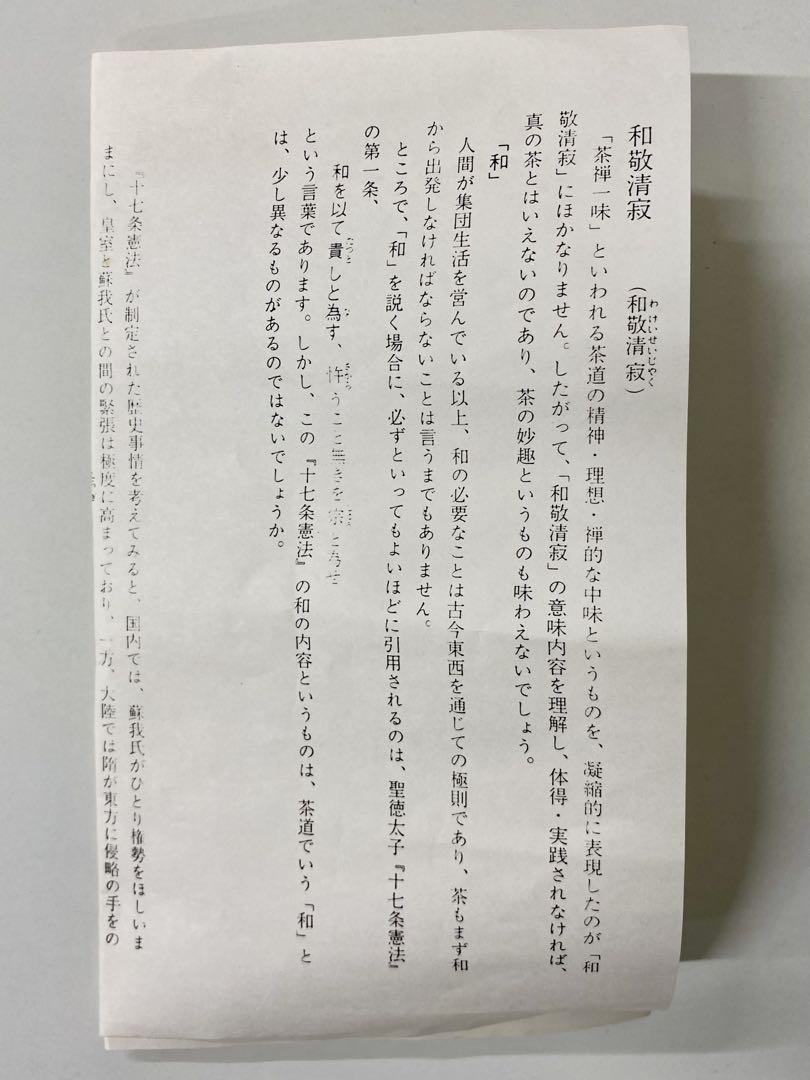 和敬清寂　（和敬清寂）
わけいせいじゃく
「茶禅一味」といわれる茶道の精神・理想・禅的な中味というものを、凝縮的に表現したのが「和
敬清寂」にほかなりません。したがって、「和敬清寂」の意味内容を理解し、体得・実践されなければ、
真の茶とはいえないのであり、茶の妙趣というものも味わえないでしょう。
「和」
人間が集団生活を営んでいる以上、和の必要なことは古今東西を通じての極則であり、茶もまず和
から出発しなければならないことは言うまでもありません。
ところで、「和」を説く場合に、必ずといってもよいほどに引用されるのは、聖徳太子『十七条憲法』
の第一条、
和を以て貴しと為す、忤うこと無きを宗と為せ
という言葉であります。しかし、この『十七条憲法』の和の内容というものは、茶道でいう「和」と
は、少し異なるものがあるのではないでしょうか。
『十七条憲法』が制定された歴史事情を考えてみると、国内では、蘇我氏がひとり権勢をほしいま
まにし、皇室と蘇我氏との間の緊張は極度に高まっており、一方、大陸では隋が東方に侵略の手をの